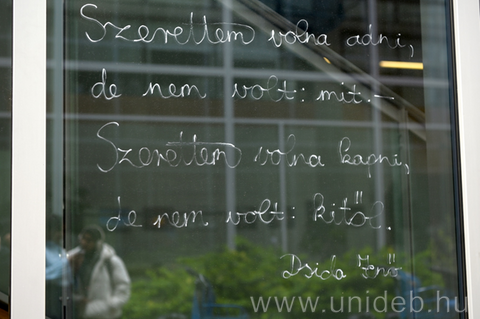 Szerettem volna adni,
de nem volt: mit.—
Szerettem volna kapni,
de nem volt: kitől.
Dsida Jenő
www.unideb.hu